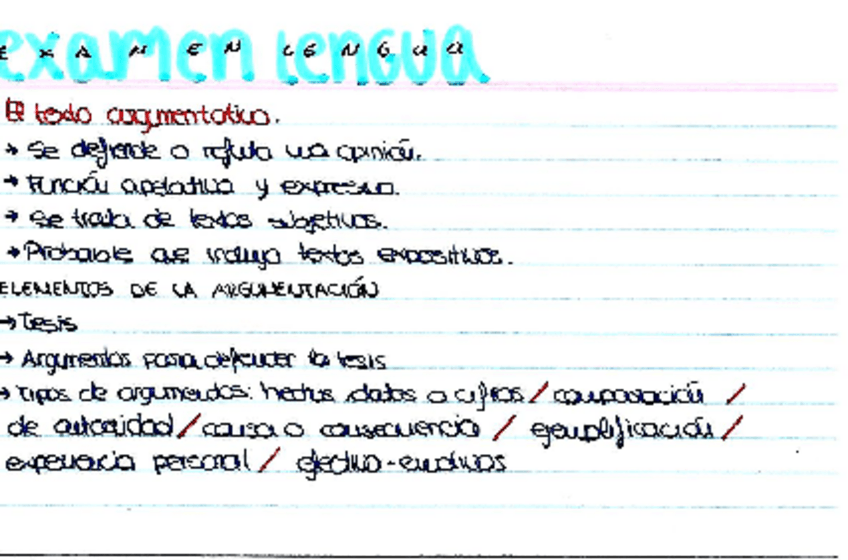 examen lengua
EXAMEN LENGUA
El texto argumentativo.
→ Se defiende o refuta una opinión.
→ Función apelativa y expresiva.
→ Se trata de textos subjetivos.
→ Probable que incluya textos expositivos.
ELEMENTOS DE LA ARGUMENTACIÓN
→ Tesis
→ Argumentos para defender la tesis
→ Tipos de argumentos: hechos, datos o cifras / comparación /
de autoridad / causa o consecuencia / ejemplificación /
experiencia personal / afectivo-emotivos